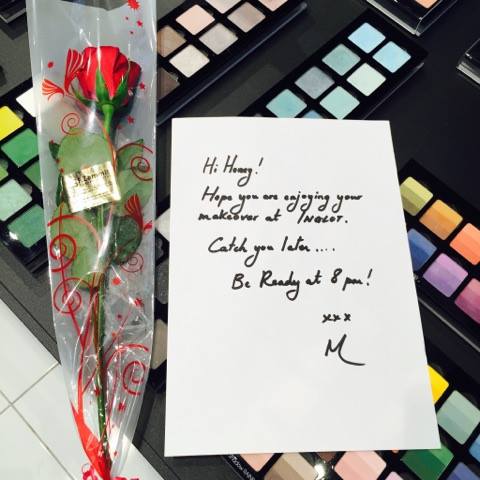 Hi Honey!
Hope you are enjoying your
makeover at INGLOT.
Catch you later....
Be Ready at 8 pm!
xxx
M